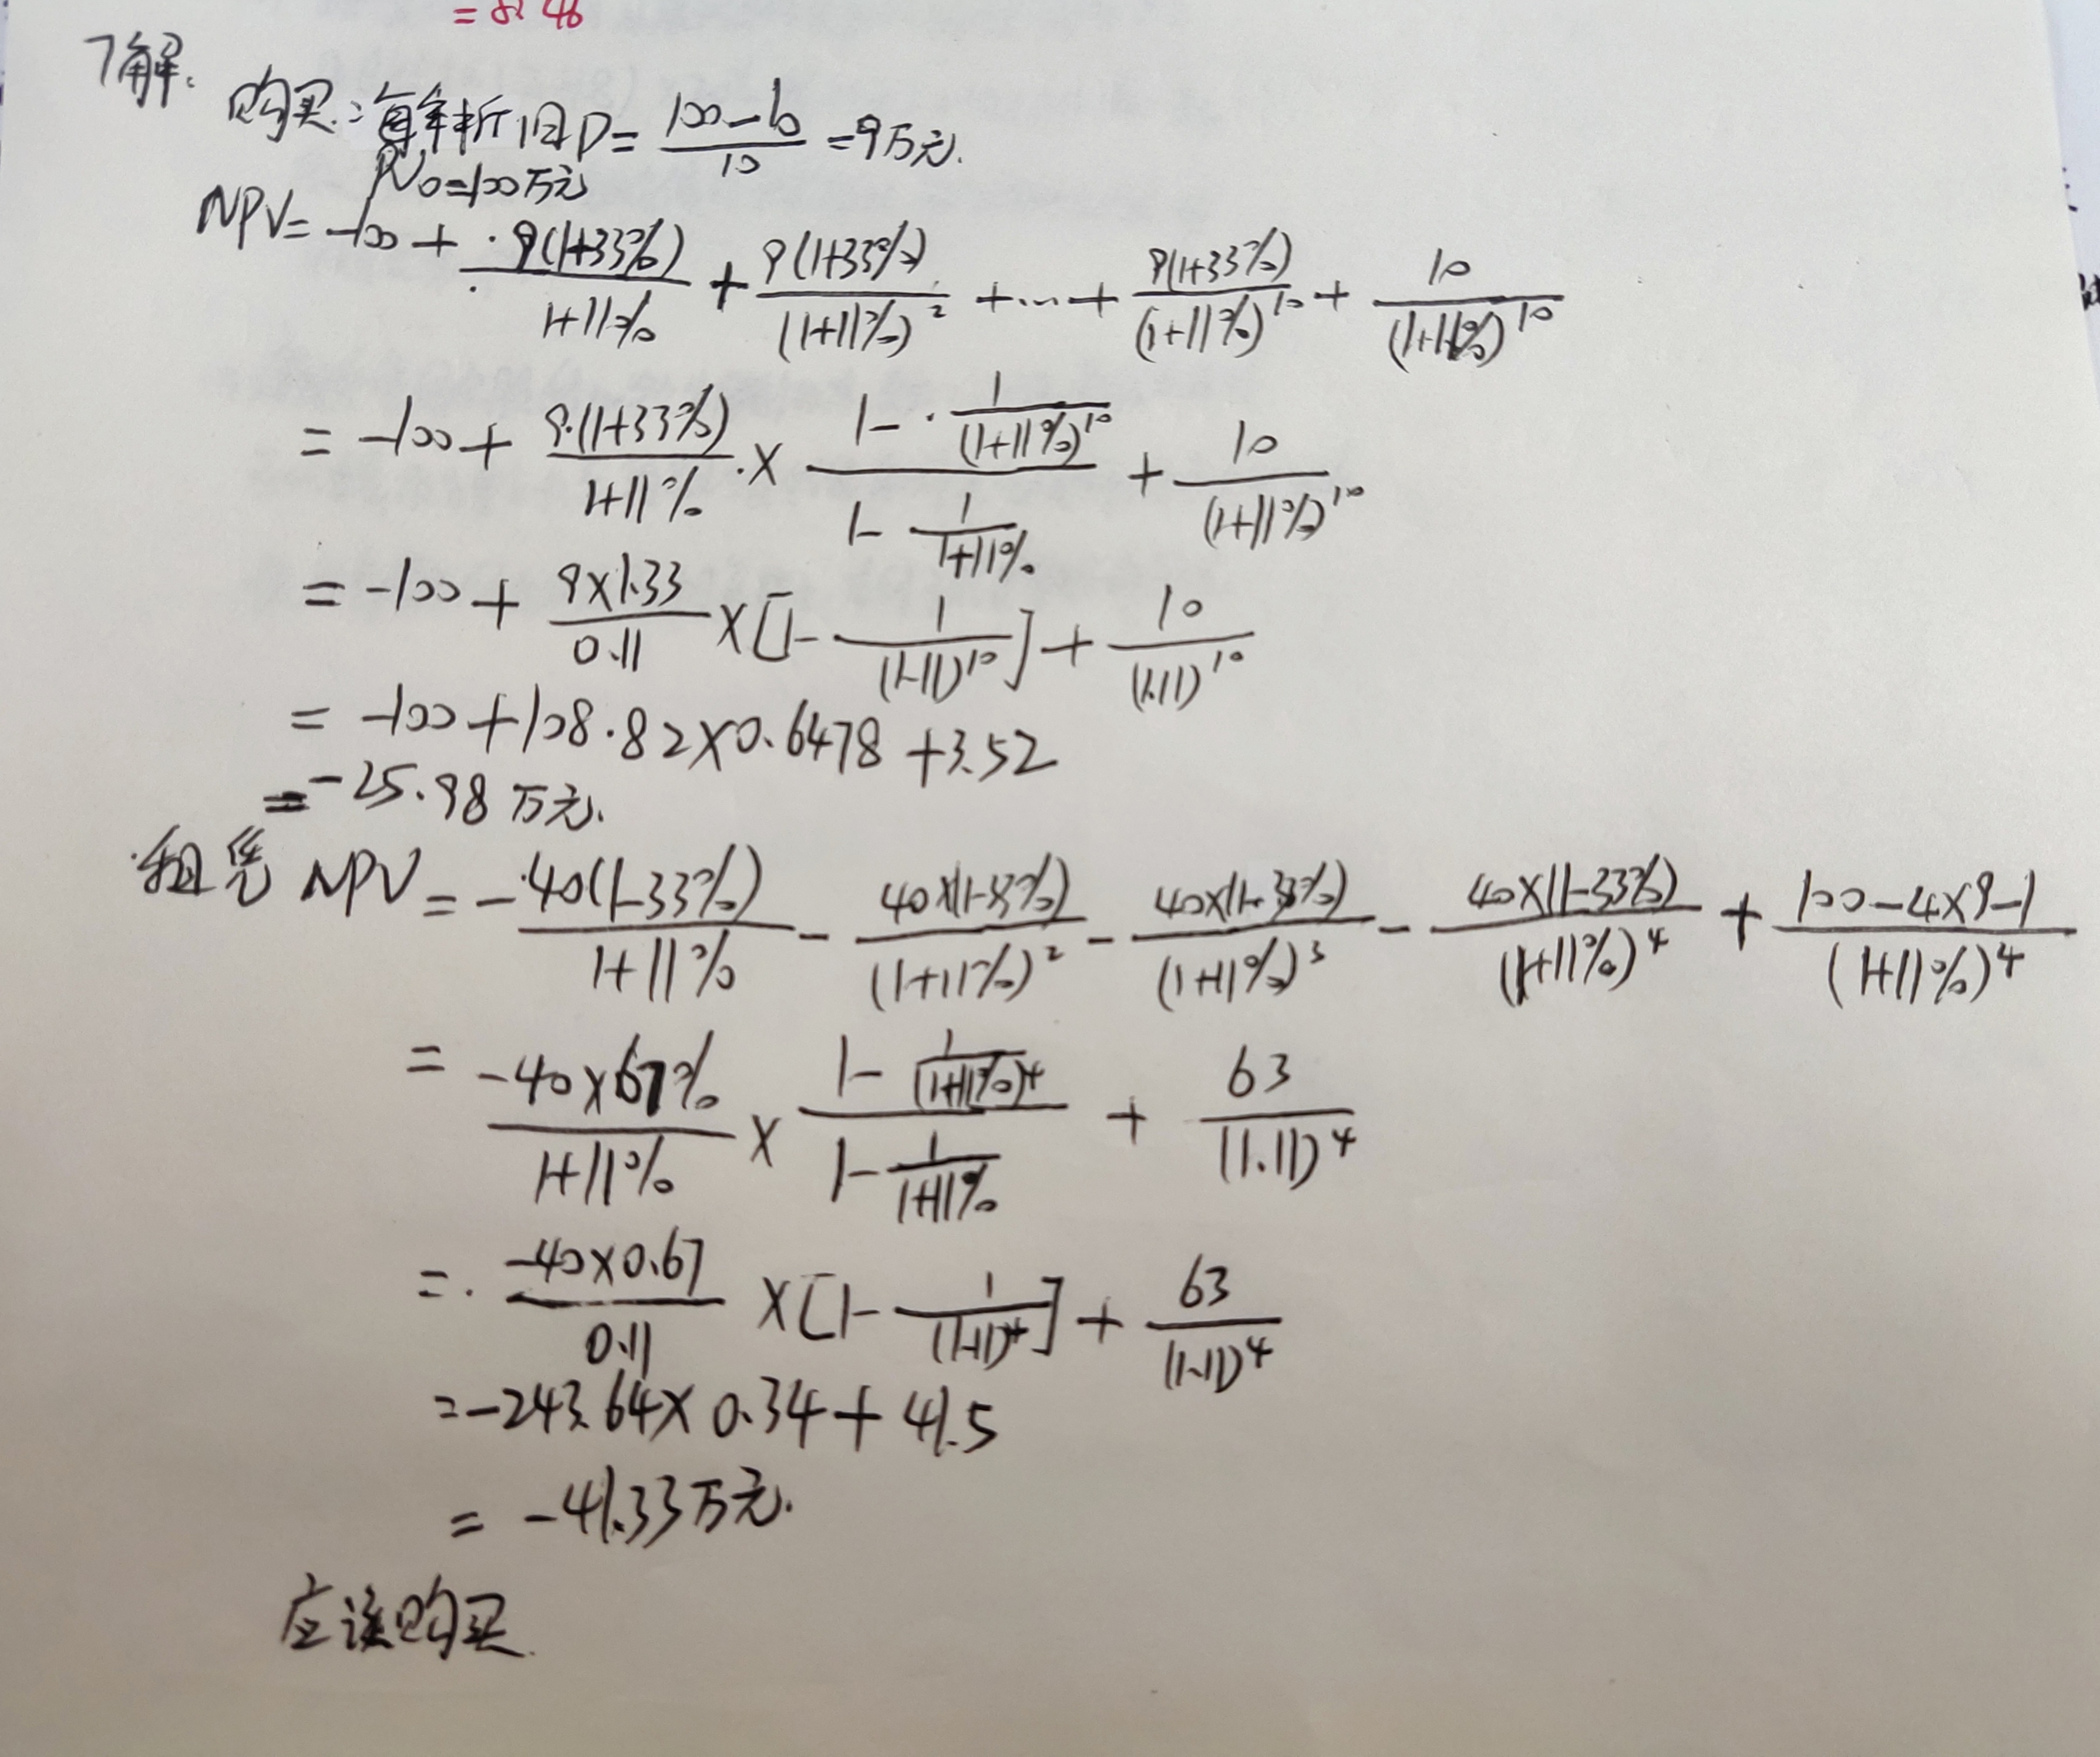 = 82.46
7解.
购买: 每年折旧D= (100-10)/10 =9万元.
N0=100万元
NPV= -100 + 9(1+33%)/(1+11%) + 9(1+33%)/(1+11%)^2 +...+ 9(1+33%)/(1+11%)^10 + 10/(1+11%)^10
= -100 + 9.(1+33%)/(1+11%) × (1- 1/(1+11%)^10)/(1- 1/(1+11%)) + 10/(1+11%)^10
= -100 + (9×1.33)/0.11 × [1- 1/(1.11)^10] + 10/(1.11)^10
= -100+108.82×0.6478+3.52
= -25.98万元.
租凭 NPV = - 40(1-33%)/(1+11%) - 40×(1-33%)/(1+11%)^2 - 40×(1-33%)/(1+11%)^3 - 40×(1-33%)/(1+11%)^4 + (100-4×9-1)/(1+11%)^4
= (-40×67%)/(1+11%) × (1- 1/(1+11%)^4)/(1- 1/(1+11%)) + 63/(1.11)^4
= (-40×0.67)/0.11 ×[1- 1/(1.11)^4] + 63/(1.11)^4
=-243.64×0.34+41.5
= -41.33万元.
应该购买.